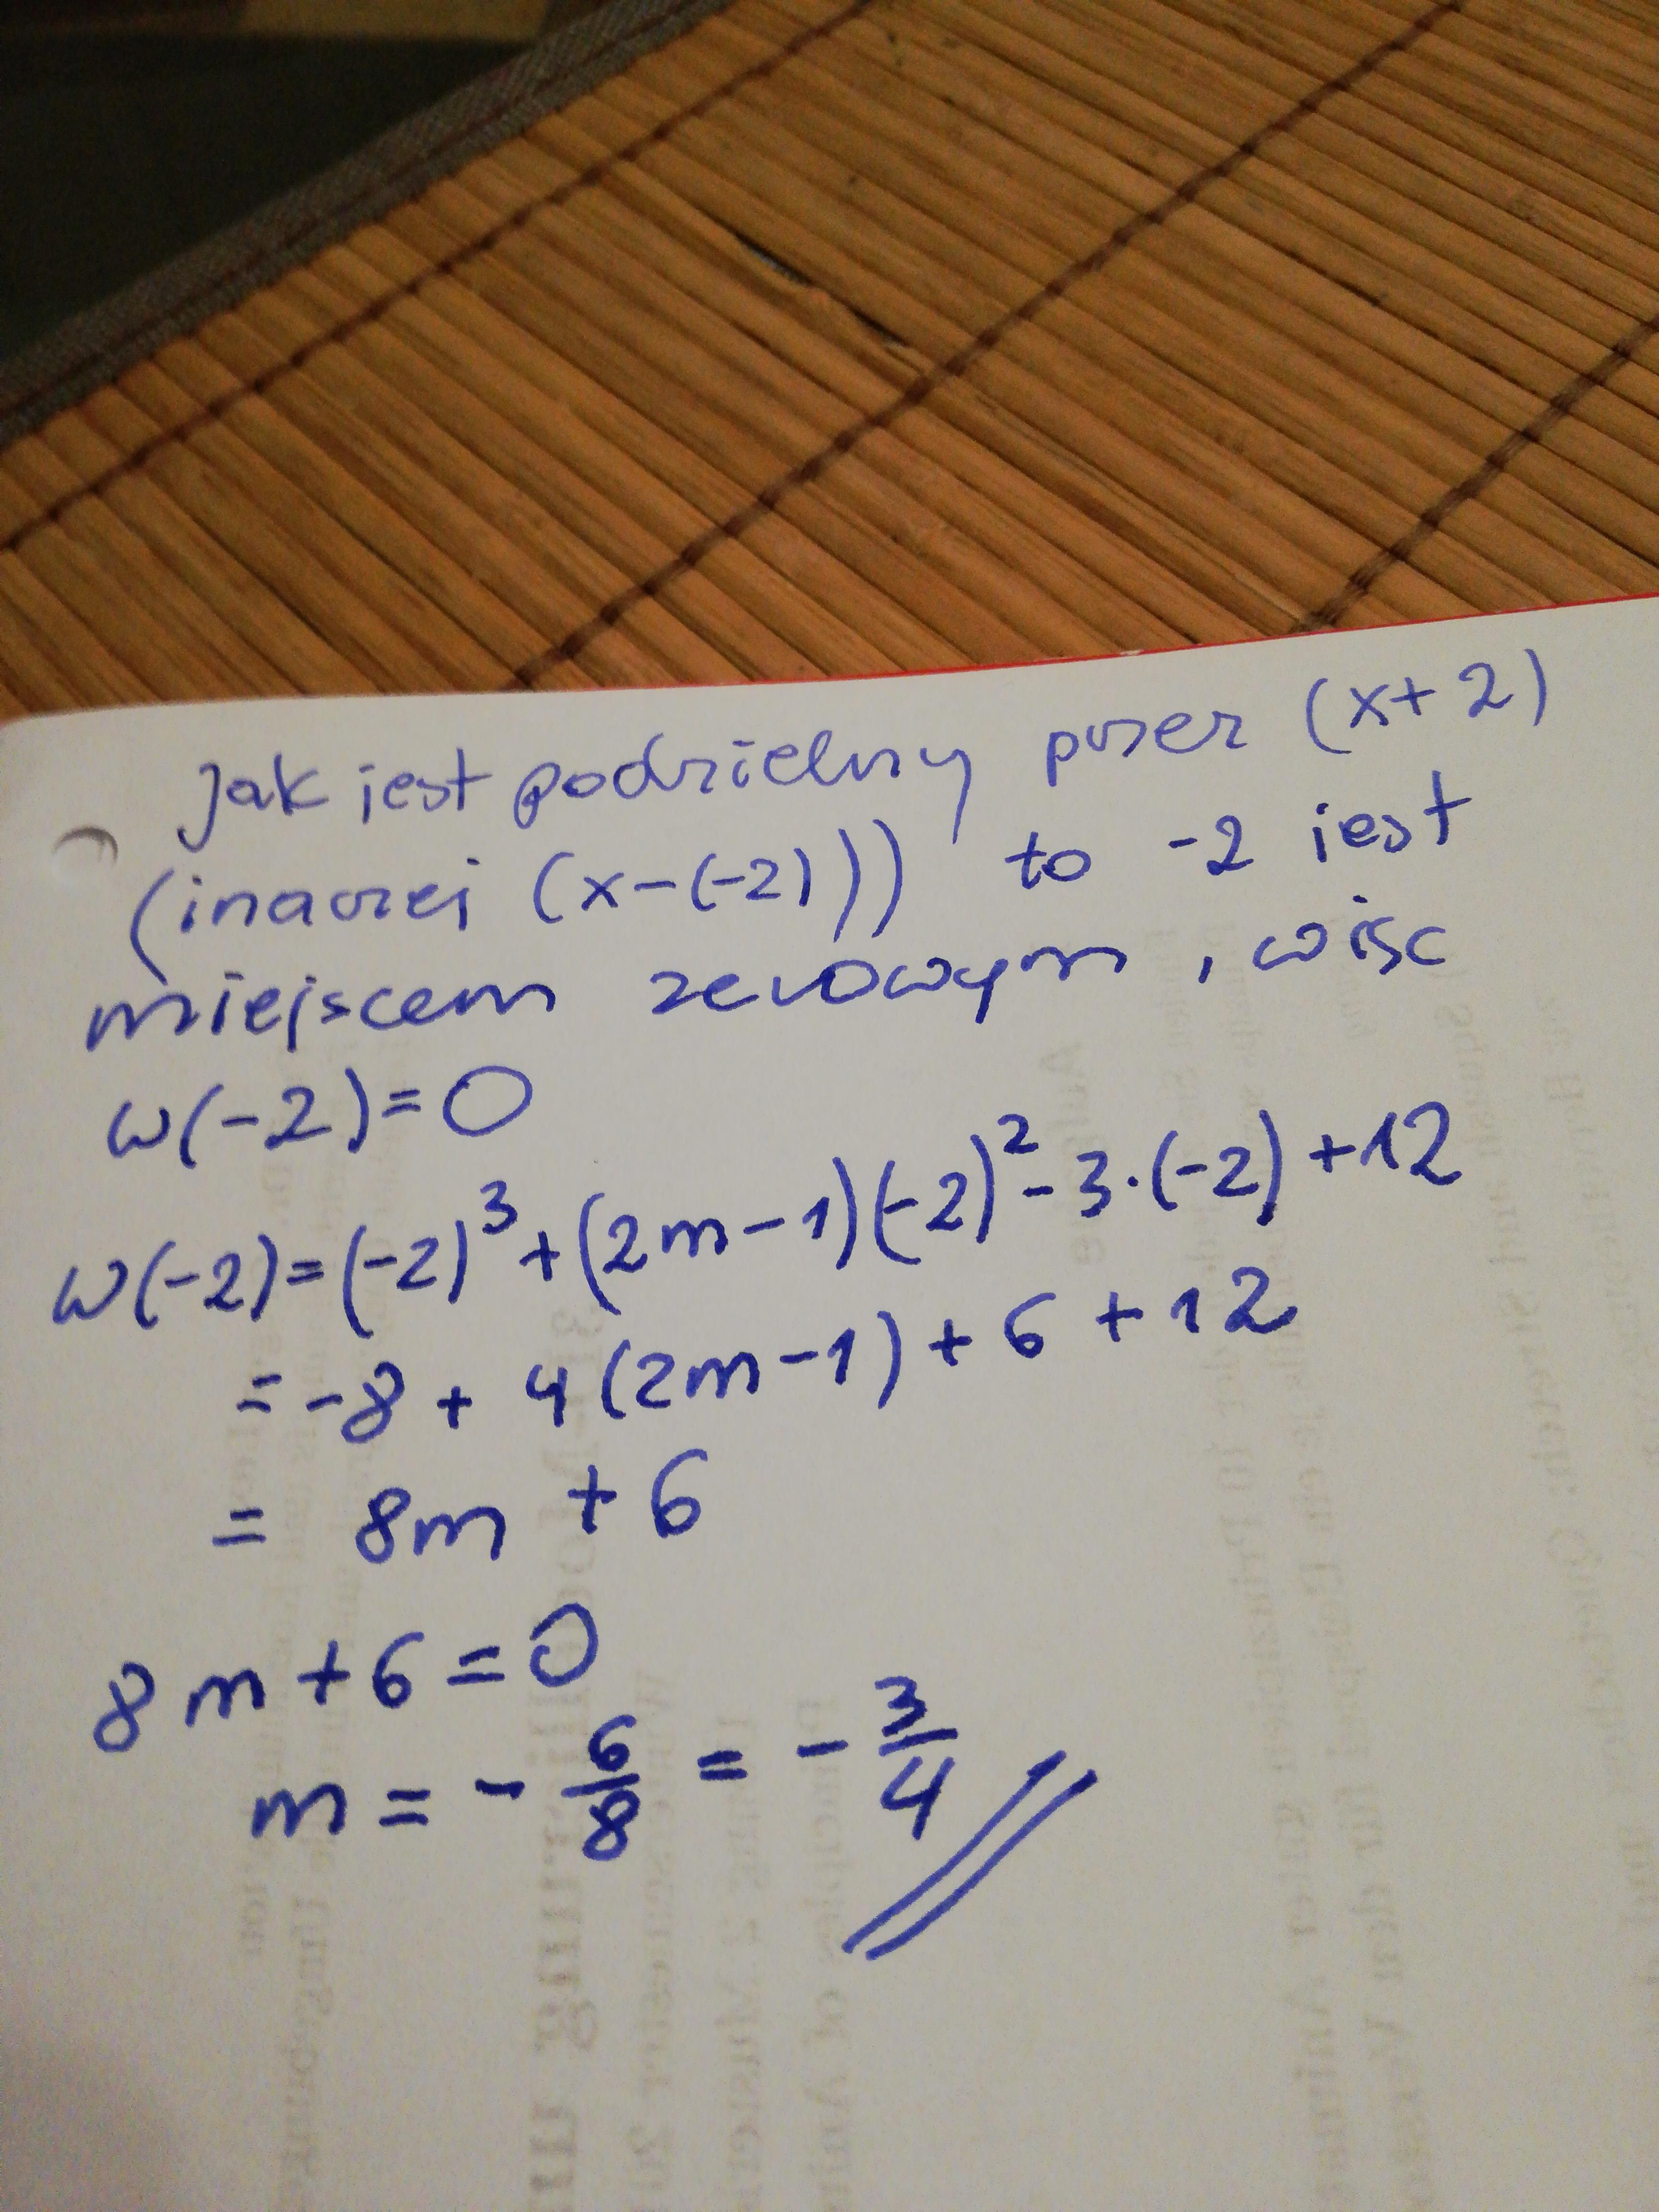 Jak jest podzielny przez (x+2)
(inaczej (x-(-2))) to -2 jest
miejscem zerowym, więc
w(-2)=0
w(-2)=(-2)³+(2m-1)(-2)²-3·(-2)+12
=-8+4(2m-1)+6+12
= 8m+6
8m+6=0
m=-6/8=-3/4